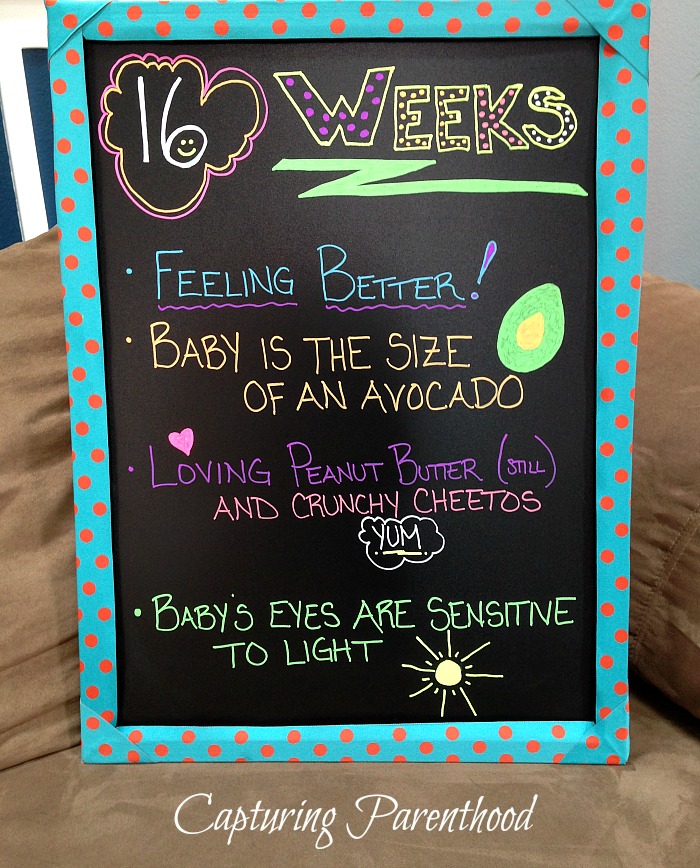 16 WEEKS
• FEELING BETTER!
• BABY IS THE SIZE
OF AN AVOCADO
• LOVING PEANUT BUTTER (STILL)
AND CRUNCHY CHEETOS
YUM
• BABY'S EYES ARE SENSITIVE
TO LIGHT
Capturing Parenthood